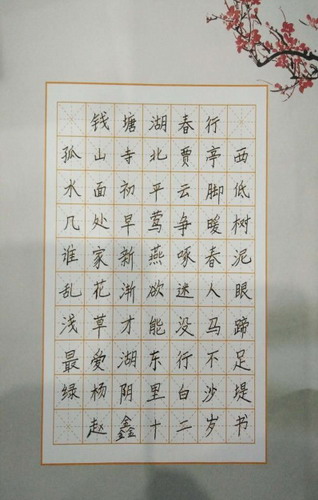 钱塘湖春行
孤山寺北贾亭西
水面初平云脚低
几处早莺争暖树
谁家新燕啄春泥
乱花渐欲迷人眼
浅草才能没马蹄
最爱湖东行不足
绿杨阴里白沙堤
赵鑫十二岁书